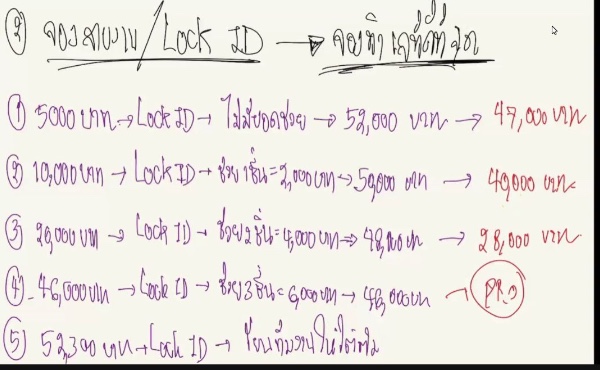 ② จองสายงาน/Lock ID → จองทำเลที่ดีที่สุด
① 5000 บาท → Lock ID → ไม่มียอดช่วย → 52,000 บาท → 47,000 บาท
② 10,000 บาท → Lock ID → ช่วย 1 ชิ้น = 2,000 บาท → 50,000 บาท → 40,000 บาท
③ 20,000 บาท → Lock ID → ช่วย 2 ชิ้น = 4,000 บาท → 48,000 บาท → 28,000 บาท
④ - 46,000 บาท → Lock ID → ช่วย 3 ชิ้น = 6,000 บาท → 46,000 บาท → PRO
⑤ 52,300 บาท → Lock ID → ทีมงาน